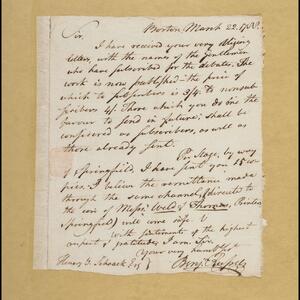 Boston March 22. 1788.
Sir,
I have received your very obliging
letters, with the names of the gentlemen
who have subscribed for the debates. The
work is now published—the price of
which to subscribers is 3/4. To nonsub
scribers 4/. Those which you do me the
favour to send in future, shall be
considered as subscribers, as well as
those already sent.
Per Stage, by way
of Springfield, I have sent you 15 co
pies. I believe the remittance made
through the same channel, (directed to
the care of Messrs Weld & Thomas, Printers
Springfield) will come safe.
With sentiments of the highest
respect & gratitude, I am, Sir,
Your very
Benj Russell
Henry V. Schaack Esq